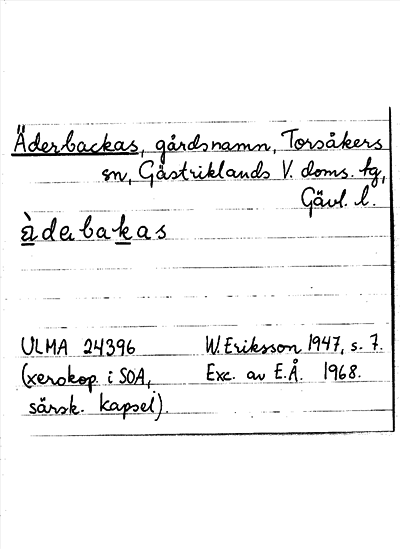 Äderbackas, gårdsnamn, Torsåkers
sn, Gästriklands V. doms. tg,
Gävl. l.
ä̀debakas
ULMA 24396
(xerokop. i SOA,
särsk. kapsel).
W. Eriksson 1947, s. 7.
Exc. av E.Å. 1968.